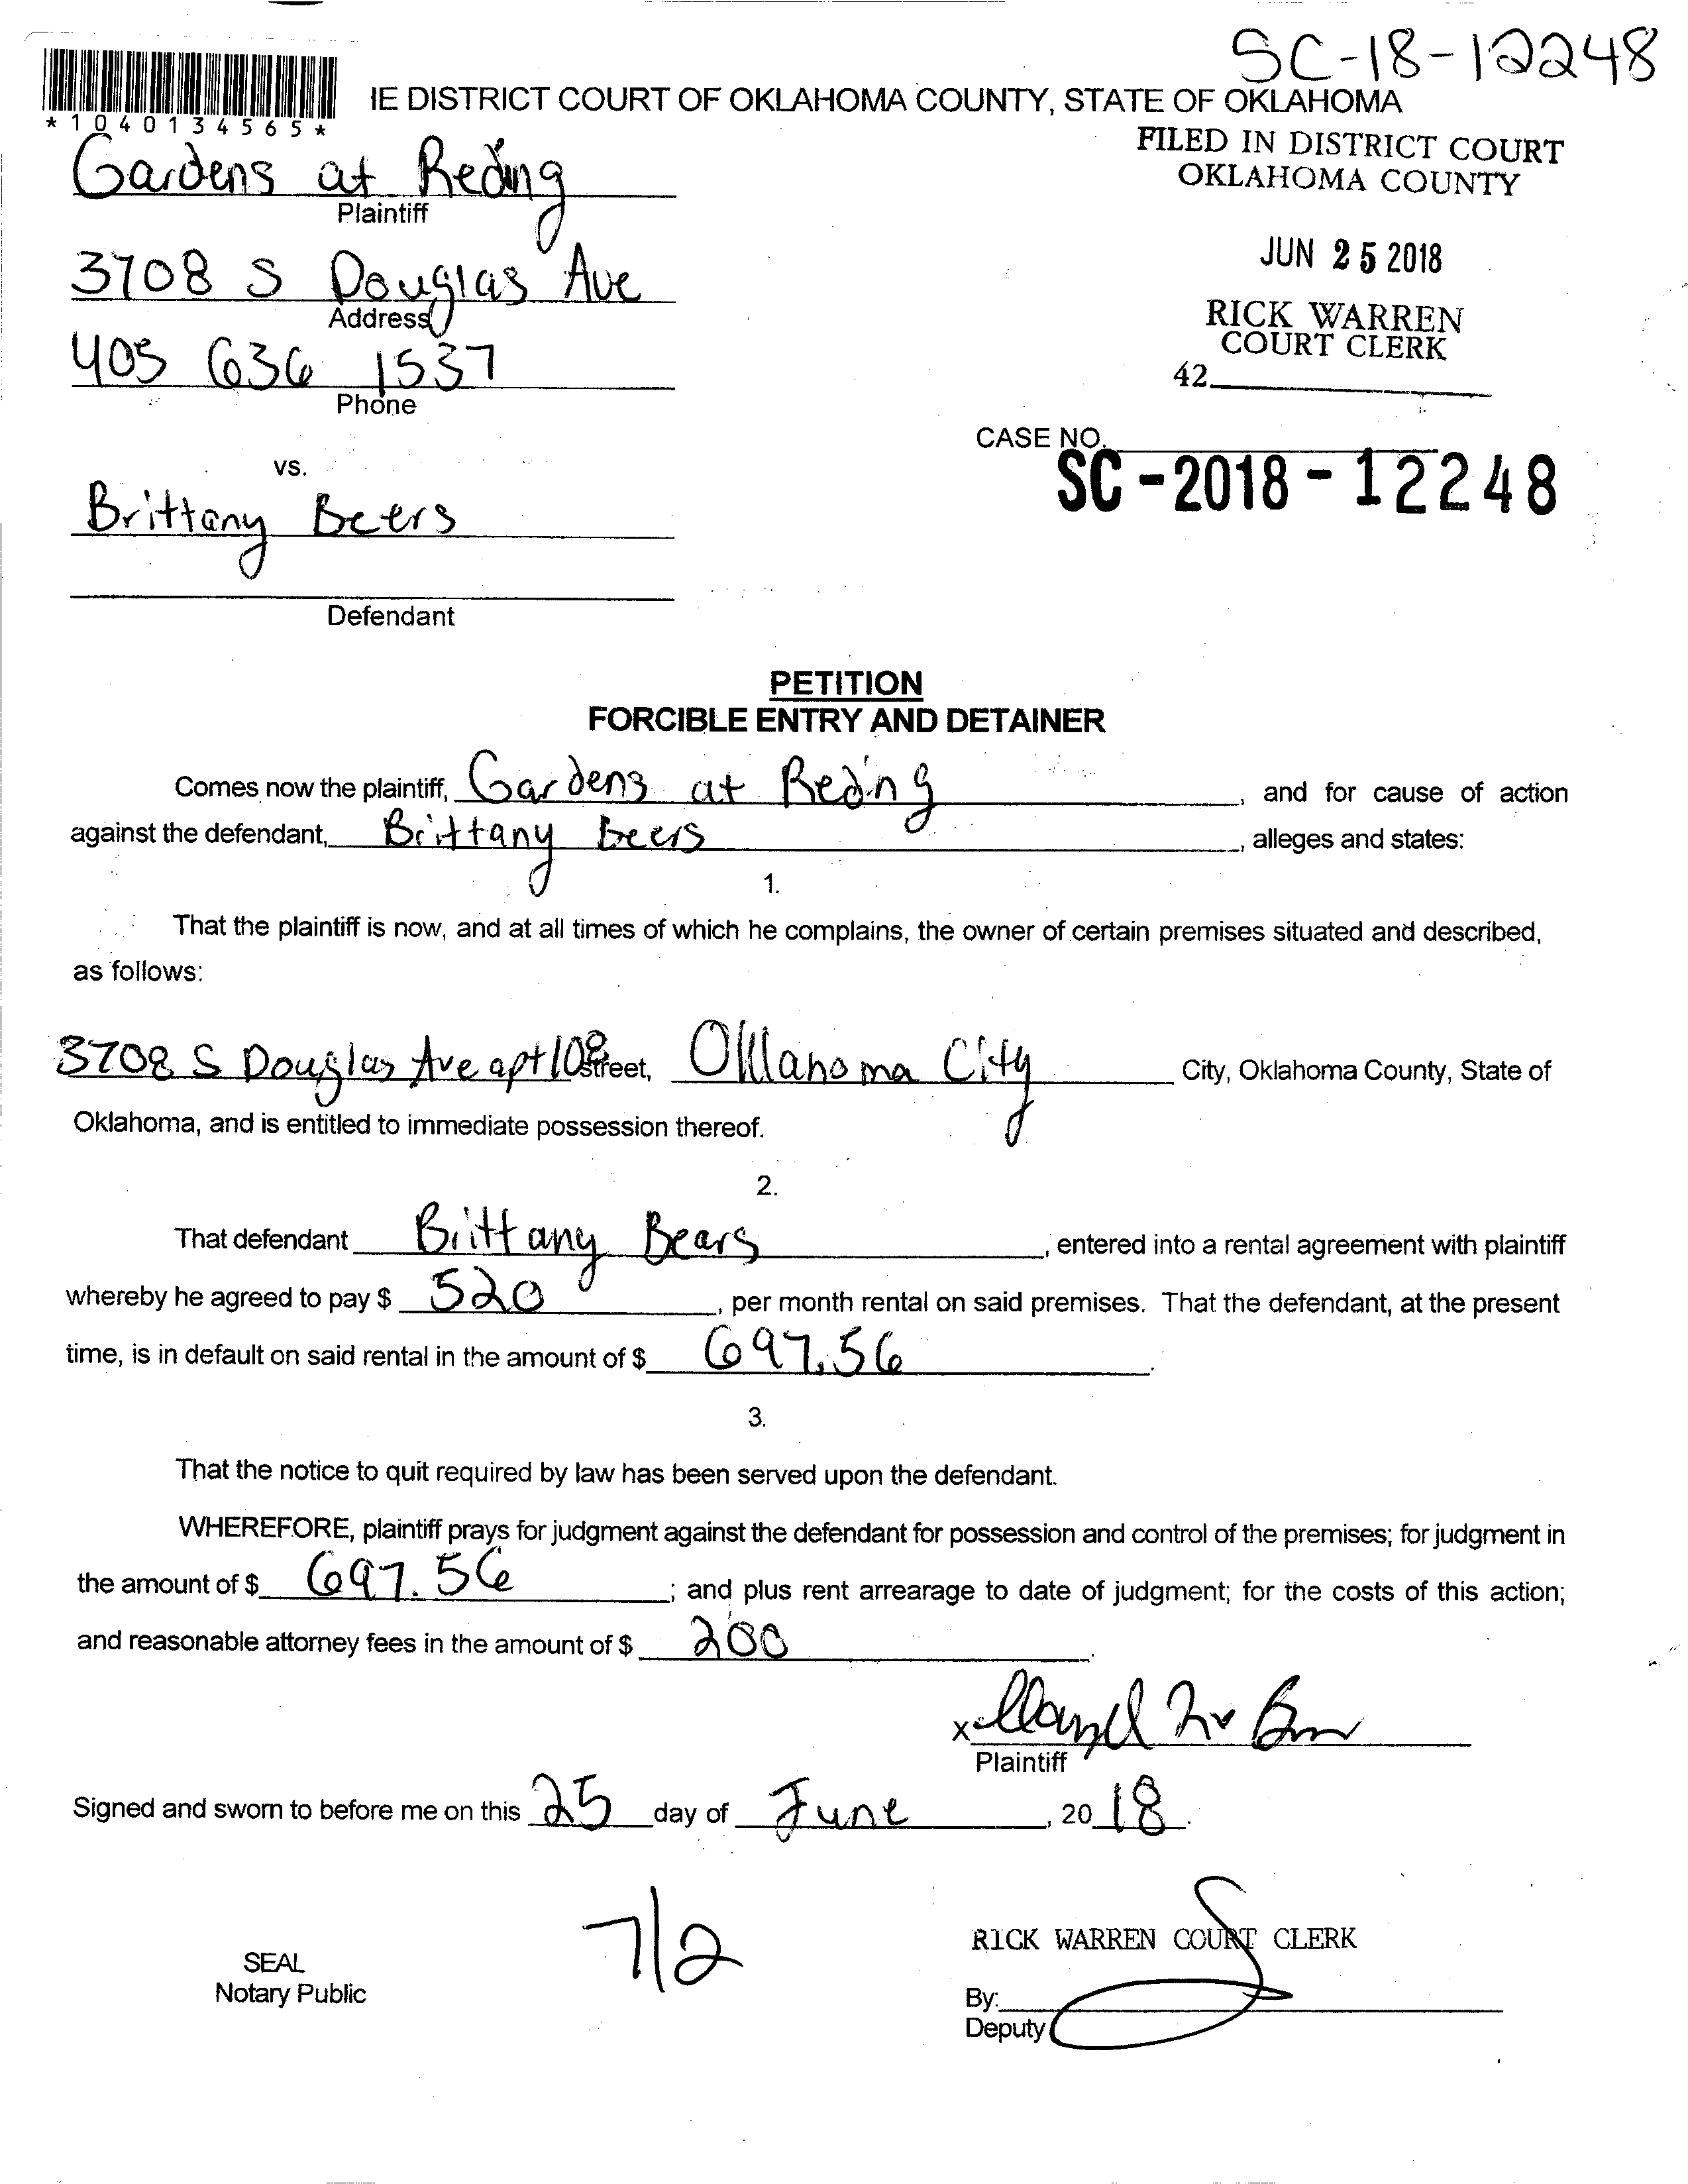 SC-18-12248
IE DISTRICT COURT OF OKLAHOMA COUNTY, STATE OF OKLAHOMA
*1040134565*
FILED IN DISTRICT COURT
OKLAHOMA COUNTY
Gardens at Reding
Plaintiff
JUN 25 2018
3708 S Douglas Ave
Address
RICK WARREN
COURT CLERK
405 636 1537
Phone
42
CASE NO.
SC-2018-12248
vs.
Brittany Beers
Defendant
PETITION
FORCIBLE ENTRY AND DETAINER
Comes now the plaintiff, Gardens at Reding, and for cause of action
against the defendant, Brittany Beers, alleges and states:
1.
That the plaintiff is now, and at all times of which he complains, the owner of certain premises situated and described,
as follows:
3708 S Douglas Ave apt 108 Street, Oklahoma City City, Oklahoma County, State of
Oklahoma, and is entitled to immediate possession thereof.
2.
That defendant Brittany Bears, entered into a rental agreement with plaintiff
whereby he agreed to pay $ 520, per month rental on said premises. That the defendant, at the present
time, is in default on said rental in the amount of $ 697.56.
3.
That the notice to quit required by law has been served upon the defendant.
WHEREFORE, plaintiff prays for judgment against the defendant for possession and control of the premises; for judgment in
the amount of $ 697.56; and plus rent arrearage to date of judgment; for the costs of this action;
and reasonable attorney fees in the amount of $ 200.
x
Plaintiff
Signed and sworn to before me on this 25 day of June, 20 18.
7/2
RICK WARREN COURT CLERK
SEAL
Notary Public
By:
Deputy